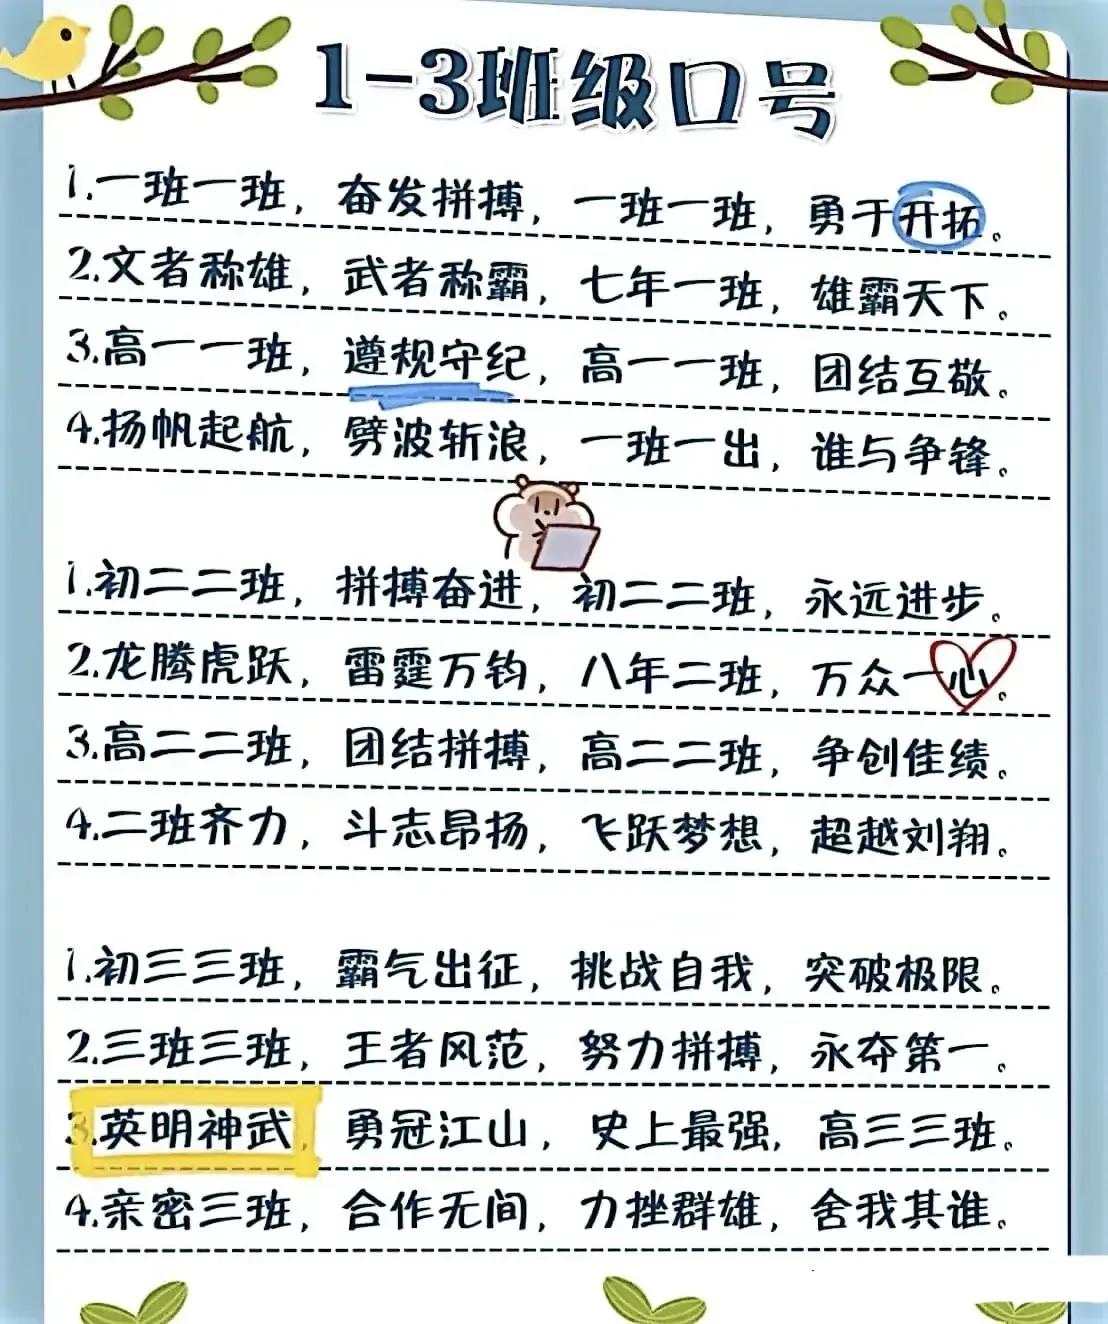 1-3班级口号
1.一班一班，奋发拼搏，一班一班，勇于开拓。
2.文者称雄，武者称霸，七年一班，雄霸天下。
3.高一一班，遵规守纪，高一一班，团结互敬。
4.扬帆起航，劈波斩浪，一班一出，谁与争锋。
1.初二二班，拼搏奋进，初二二班，永远进步。
2.龙腾虎跃，雷霆万钧，八年二班，万众一心。
3.高二二班，团结拼搏，高二二班，争创佳绩。
4.二班齐力，斗志昂扬，飞跃梦想，超越刘翔。
1.初三三班，霸气出征，挑战自我，突破极限。
2.三班三班，王者风范，努力拼搏，永夺第一。
3.英明神武，勇冠江山，史上最强，高三三班。
4.亲密三班，合作无间，力挫群雄，舍我其谁。